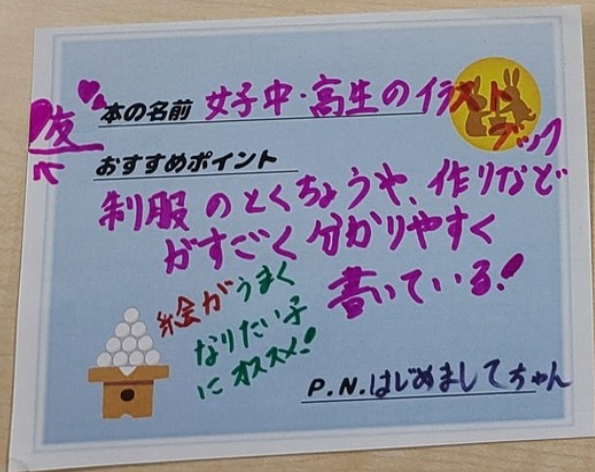 本の名前 女子中・高生のイラスト
ブック
友
おすすめポイント
制服のとくちょうや、作りなど
がすごく分かりやすく
書いている!
絵がうまく
なりたい子
にオススメ!
P.N.はじめましてちゃん